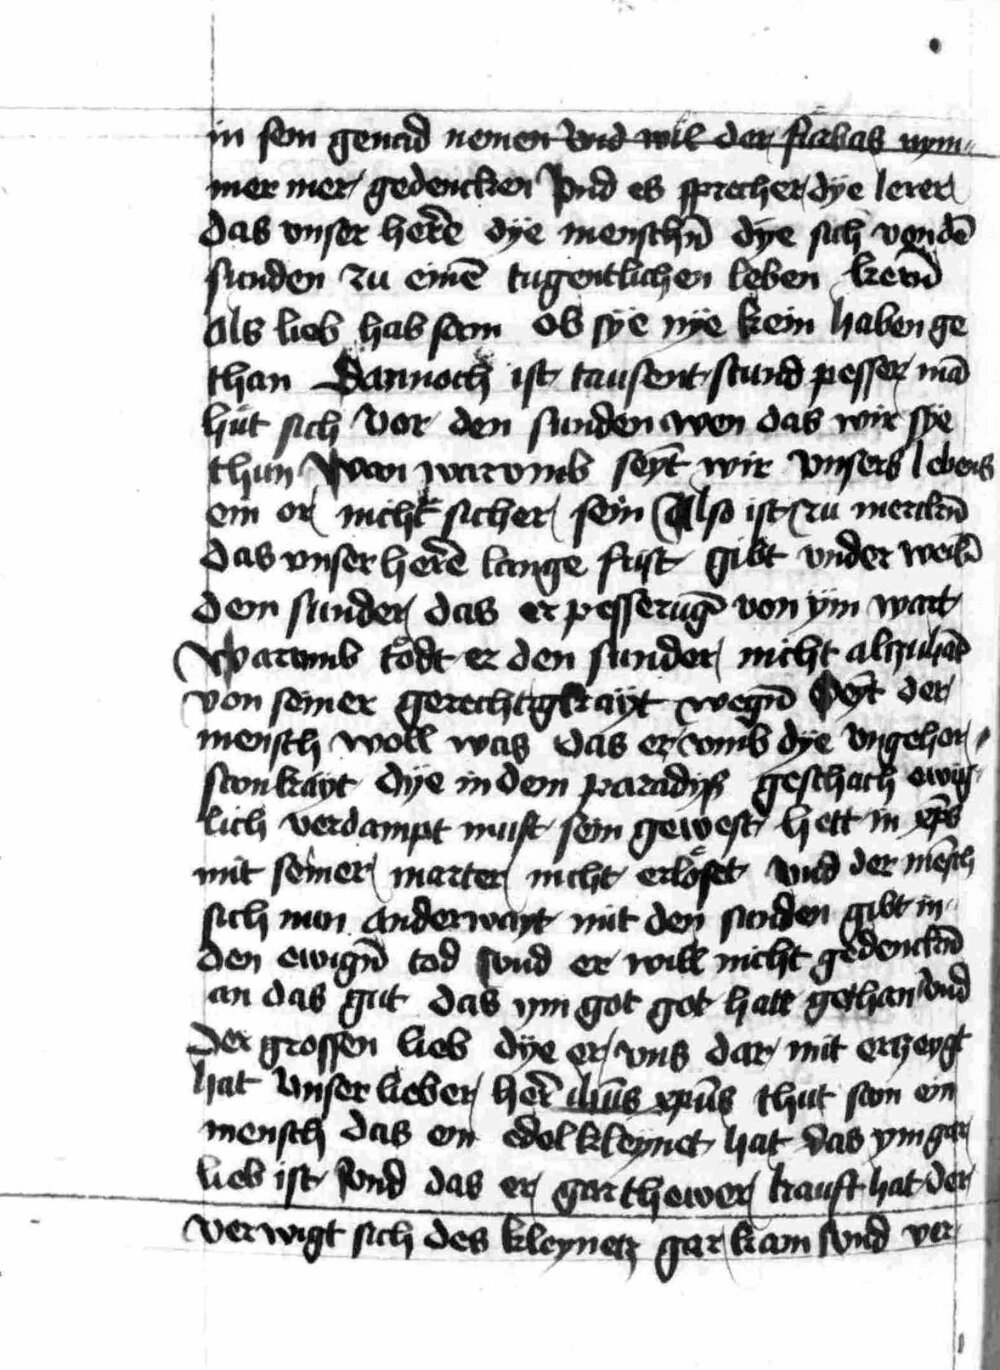 in sein genad nemen vnd wil der sunden nym-
mer mer gedencken Vnd es sprechen dye lerer
das vnser herre dye menschn̄ dye sich von dē
sunden zu einē tugentlichen leben kern̄
als lieb hab sam ob sye nye kein haben ge
than Dannoch ist tausent stund pesser mā
hüt sich vor den sunden wen das wir sye
thun Wan warumb seyt wir vnsers lebens
ein or nicht sicher sein Also ist zu mercken̄
das vnser herē lange frist gibt vnder weiln̄
dem sunder das er pesserūg von ym wart
Warumb tödt er den sunder nicht alzuhāt
von seiner gerechtigkayt wegn̄ Seyt der
mensch woll was das er vmb dye vngehor-
samkayt dye in dem paradyß geschach ewig-
lich verdampt must sein gewest hett in xp̄s
mit seiner marter nicht erlöset Vnd der mēsch
sich nun anderwayt mit den sunden gibt in
den ewign̄ tod vnd er will nicht gedenckn̄
an das gut das ym got got hatt gethan vnd
der grossen lieb dye er vns dar mit erzeygt
hat Vnser lieber her̄ ihūs xp̄us thut sam ein
mensch das ein edel kleynet hat das ym gar
lieb ist vnd das er gar thewer kaufft hat der
verwigt sich des kleynetz gar kam vnd ver-